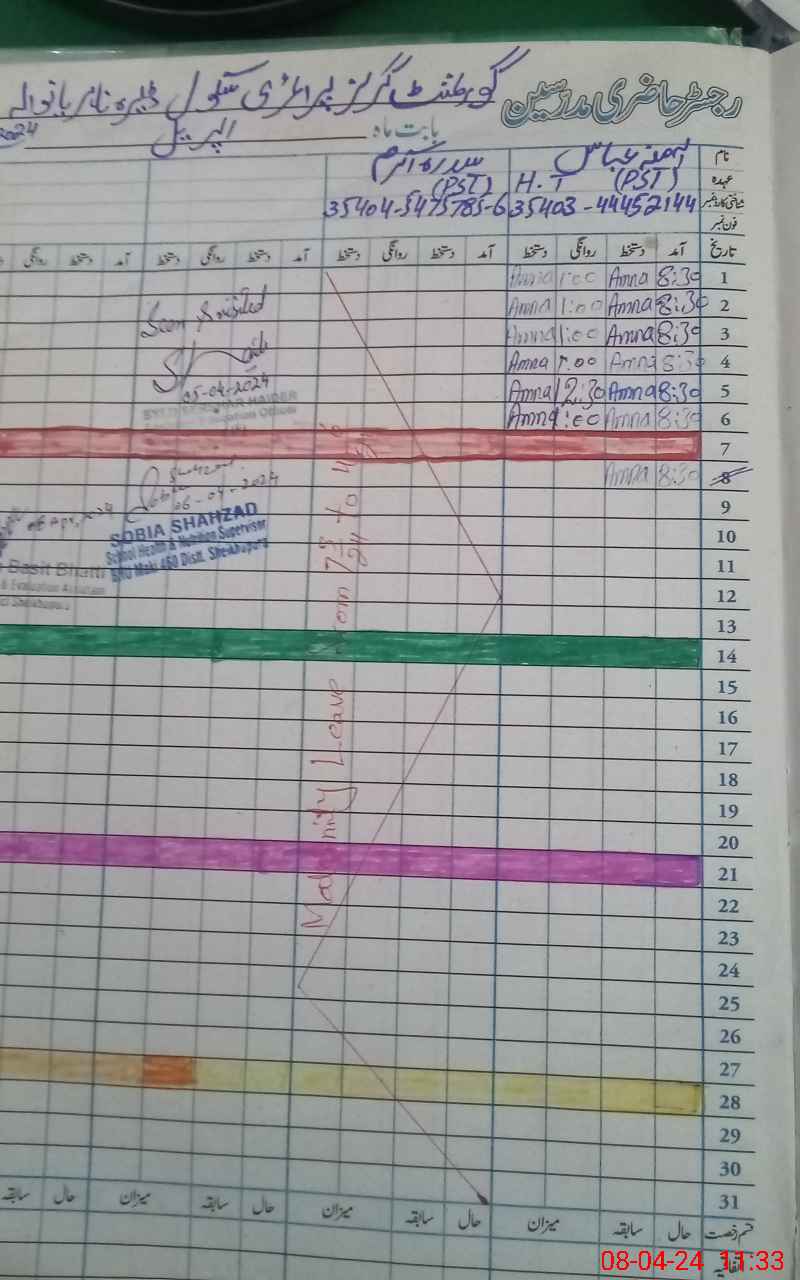 رجسٹر حاضری مدرسین گورنمنٹ گرلز پرائمری سکول ڈیرہ
بابت ماہ اپریل 2024
نام آمنہ عباس سدرہ اکرم
عہدہ (PST) H.T (PST)
شناختی کارڈ نمبر 35403-44452144 35404-5475785-6
فون نمبر
تاریخ آمد دستخط روانگی دستخط آمد دستخط روانگی دستخط آمد دستخط روانگی دستخط آمد دستخط روانگی
1 8:30 Amna 1:00 Amna
2 8:30 Amna 1:00 Amna
3 8:30 Amna 1:00 Amna
4 8:30 Amna 1:00 Amna
5 8:30 Amna 12:30 Amna
6 8:30 Amna 1:00 Amna
7
8 8:30 Amna
9
10
11
12
13
14
15
16
17
18
19
20
21
22
23
24
25
26
27
28
29
30
31
Seen & visited
05-04-2024
06-04-2024
SOBIA SHAHZAD
School Health & Nutrition Supervisor
BHU Maki 460 Distt. Sheikhupura
Basit Bhatti
& Evaluation Assistant
Sheikhupura
Leave from 7
حال سابقہ میزان حال سابقہ میزان حال سابقہ میزان حال سابقہ
قسم رخصت
اتفاقیہ
08-04-24 11:33